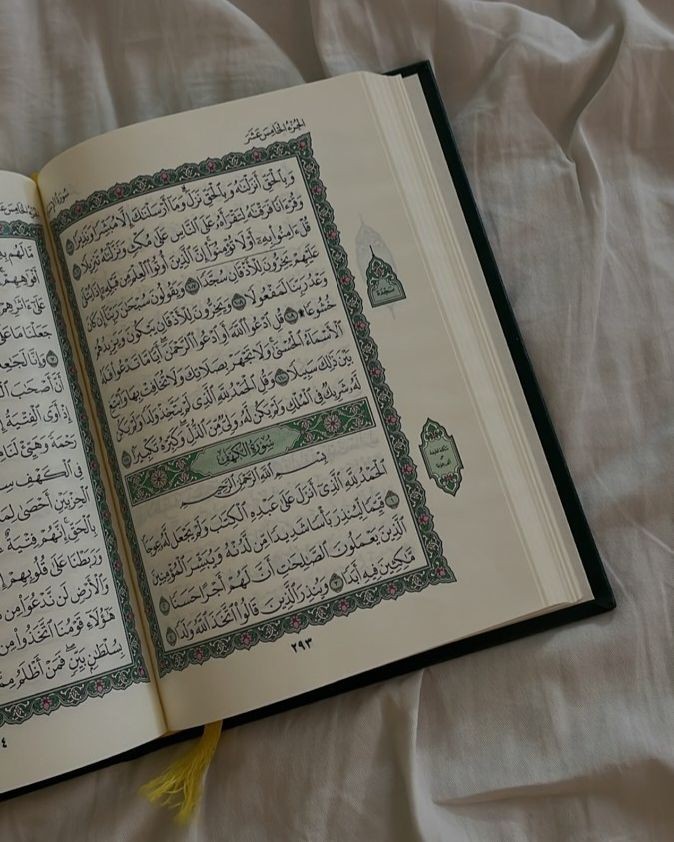 الجزء الخامس عشر
وَبِالْحَقِّ أَنزَلْنَٰهُ وَبِالْحَقِّ نَزَلَ وَمَآ أَرْسَلْنَٰكَ إِلَّا مُبَشِّرًا وَنَذِيرًا ١٠٥
وَقُرْءَانًا فَرَقْنَٰهُ لِتَقْرَأَهُۥ عَلَى النَّاسِ عَلَىٰ مُكْثٍ وَنَزَّلْنَٰهُ تَنزِيلًا ١٠٦
قُلْ ءَامِنُوا۟ بِهِۦٓ أَوْ لَا تُؤْمِنُوٓا۟ إِنَّ الَّذِينَ أُوتُوا۟ الْعِلْمَ مِن قَبْلِهِۦٓ إِذَا يُتْلَىٰ
عَلَيْهِمْ يَخِرُّونَ لِلْأَذْقَانِ سُجَّدًا ١٠٧ وَيَقُولُونَ سُبْحَٰنَ رَبِّنَآ إِن كَانَ
وَعْدُ رَبِّنَا لَمَفْعُولًا ١٠٨ وَيَخِرُّونَ لِلْأَذْقَانِ يَبْكُونَ وَيَزِيدُهُمْ
خُشُوعًا ۩ ١٠٩ قُلِ ادْعُوا۟ اللَّهَ أَوِ ادْعُوا۟ الرَّحْمَٰنَ أَيًّا مَّا تَدْعُوا۟ فَلَهُ
الْأَسْمَآءُ الْحُسْنَىٰ وَلَا تَجْهَرْ بِصَلَاتِكَ وَلَا تُخَافِتْ بِهَا وَابْتَغِ
بَيْنَ ذَٰلِكَ سَبِيلًا ١١٠ وَقُلِ الْحَمْدُ لِلَّهِ الَّذِى لَمْ يَتَّخِذْ وَلَدًا وَلَمْ يَكُن
لَّهُۥ شَرِيكٌ فِى الْمُلْكِ وَلَمْ يَكُن لَّهُۥ وَلِىٌّ مِّنَ الذُّلِّ وَكَبِّرْهُ تَكْبِيرًا ١١١
سُورَةُ الْكَهْفِ
بِسْمِ اللَّهِ الرَّحْمَٰنِ الرَّحِيمِ
الْحَمْدُ لِلَّهِ الَّذِىٓ أَنزَلَ عَلَىٰ عَبْدِهِ الْكِتَٰبَ وَلَمْ يَجْعَل لَّهُۥ عِوَجَا ١
قَيِّمًا لِّيُنذِرَ بَأْسًا شَدِيدًا مِّن لَّدُنْهُ وَيُبَشِّرَ الْمُؤْمِنِينَ
الَّذِينَ يَعْمَلُونَ الصَّٰلِحَٰتِ أَنَّ لَهُمْ أَجْرًا حَسَنًا ٢
مَّٰكِثِينَ فِيهِ أَبَدًا ٣ وَيُنذِرَ الَّذِينَ قَالُوا۟ اتَّخَذَ اللَّهُ وَلَدًا ٤
٢٩٣
عَلَىٰٓ ءَاثَٰرِهِمْ
جَعَلْنَا مَا عَلَى
وَإِنَّا لَجَٰعِلُونَ
أَنَّ أَصْحَٰبَ
إِذْ أَوَى الْفِتْيَةُ
رَحْمَةً وَهَيِّئْ لَنَا
فِى الْكَهْفِ
الْحِزْبَيْنِ أَحْصَىٰ
بِالْحَقِّ إِنَّهُمْ فِتْيَةٌ
وَرَبَطْنَا عَلَىٰ قُلُوبِهِمْ
وَالْأَرْضِ لَن نَّدْعُوَا۟ مِن
هَٰٓؤُلَآءِ قَوْمُنَا اتَّخَذُوا۟ مِن
بِسُلْطَٰنٍۭ بَيِّنٍ فَمَنْ أَظْلَمُ